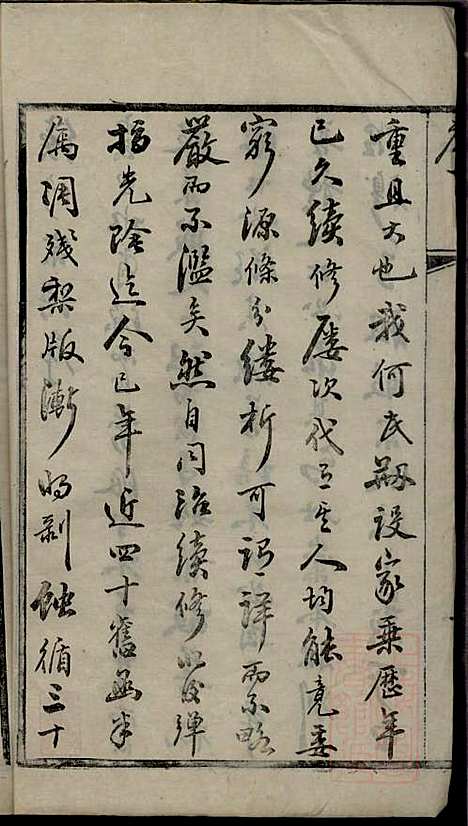 重且大也我何氏創設家乘歷年
已久續修屢次代有其人均能竟委
窮源條分縷析可謂詳而不略
嚴而不濫矣然自同治續修以後彈
指光陰迄今已年近四十舊函半
屬凋殘梨版漸將剝蝕循三十